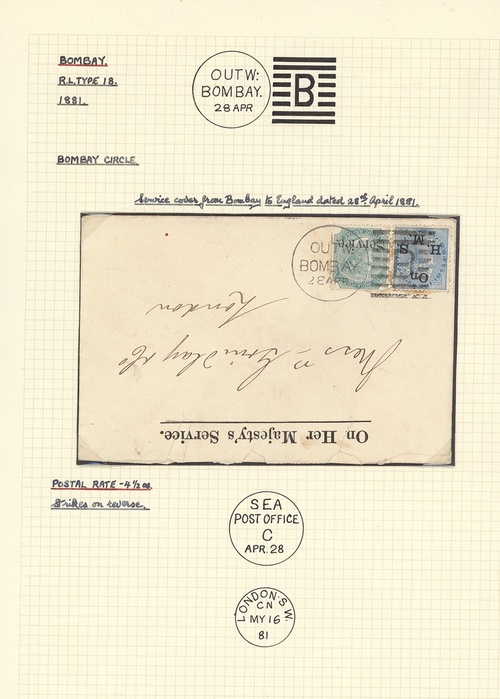 BOMBAY.
R.L.TYPE 18.
1881.
OUTW:
BOMBAY.
28 APR
B
BOMBAY CIRCLE.
Service cover from Bombay to England dated 28th April 1881.
OUTW:
BOMBAY.
28 APR
Service
On
H. S.
M.
London
Messrs Grindlay & Co
On Her Majesty's Service.
POSTAL RATE - 4½ as.
Strikes on reverse.
SEA
POST OFFICE
C
APR. 28
LONDON·S.W.
CN
MY 16
81